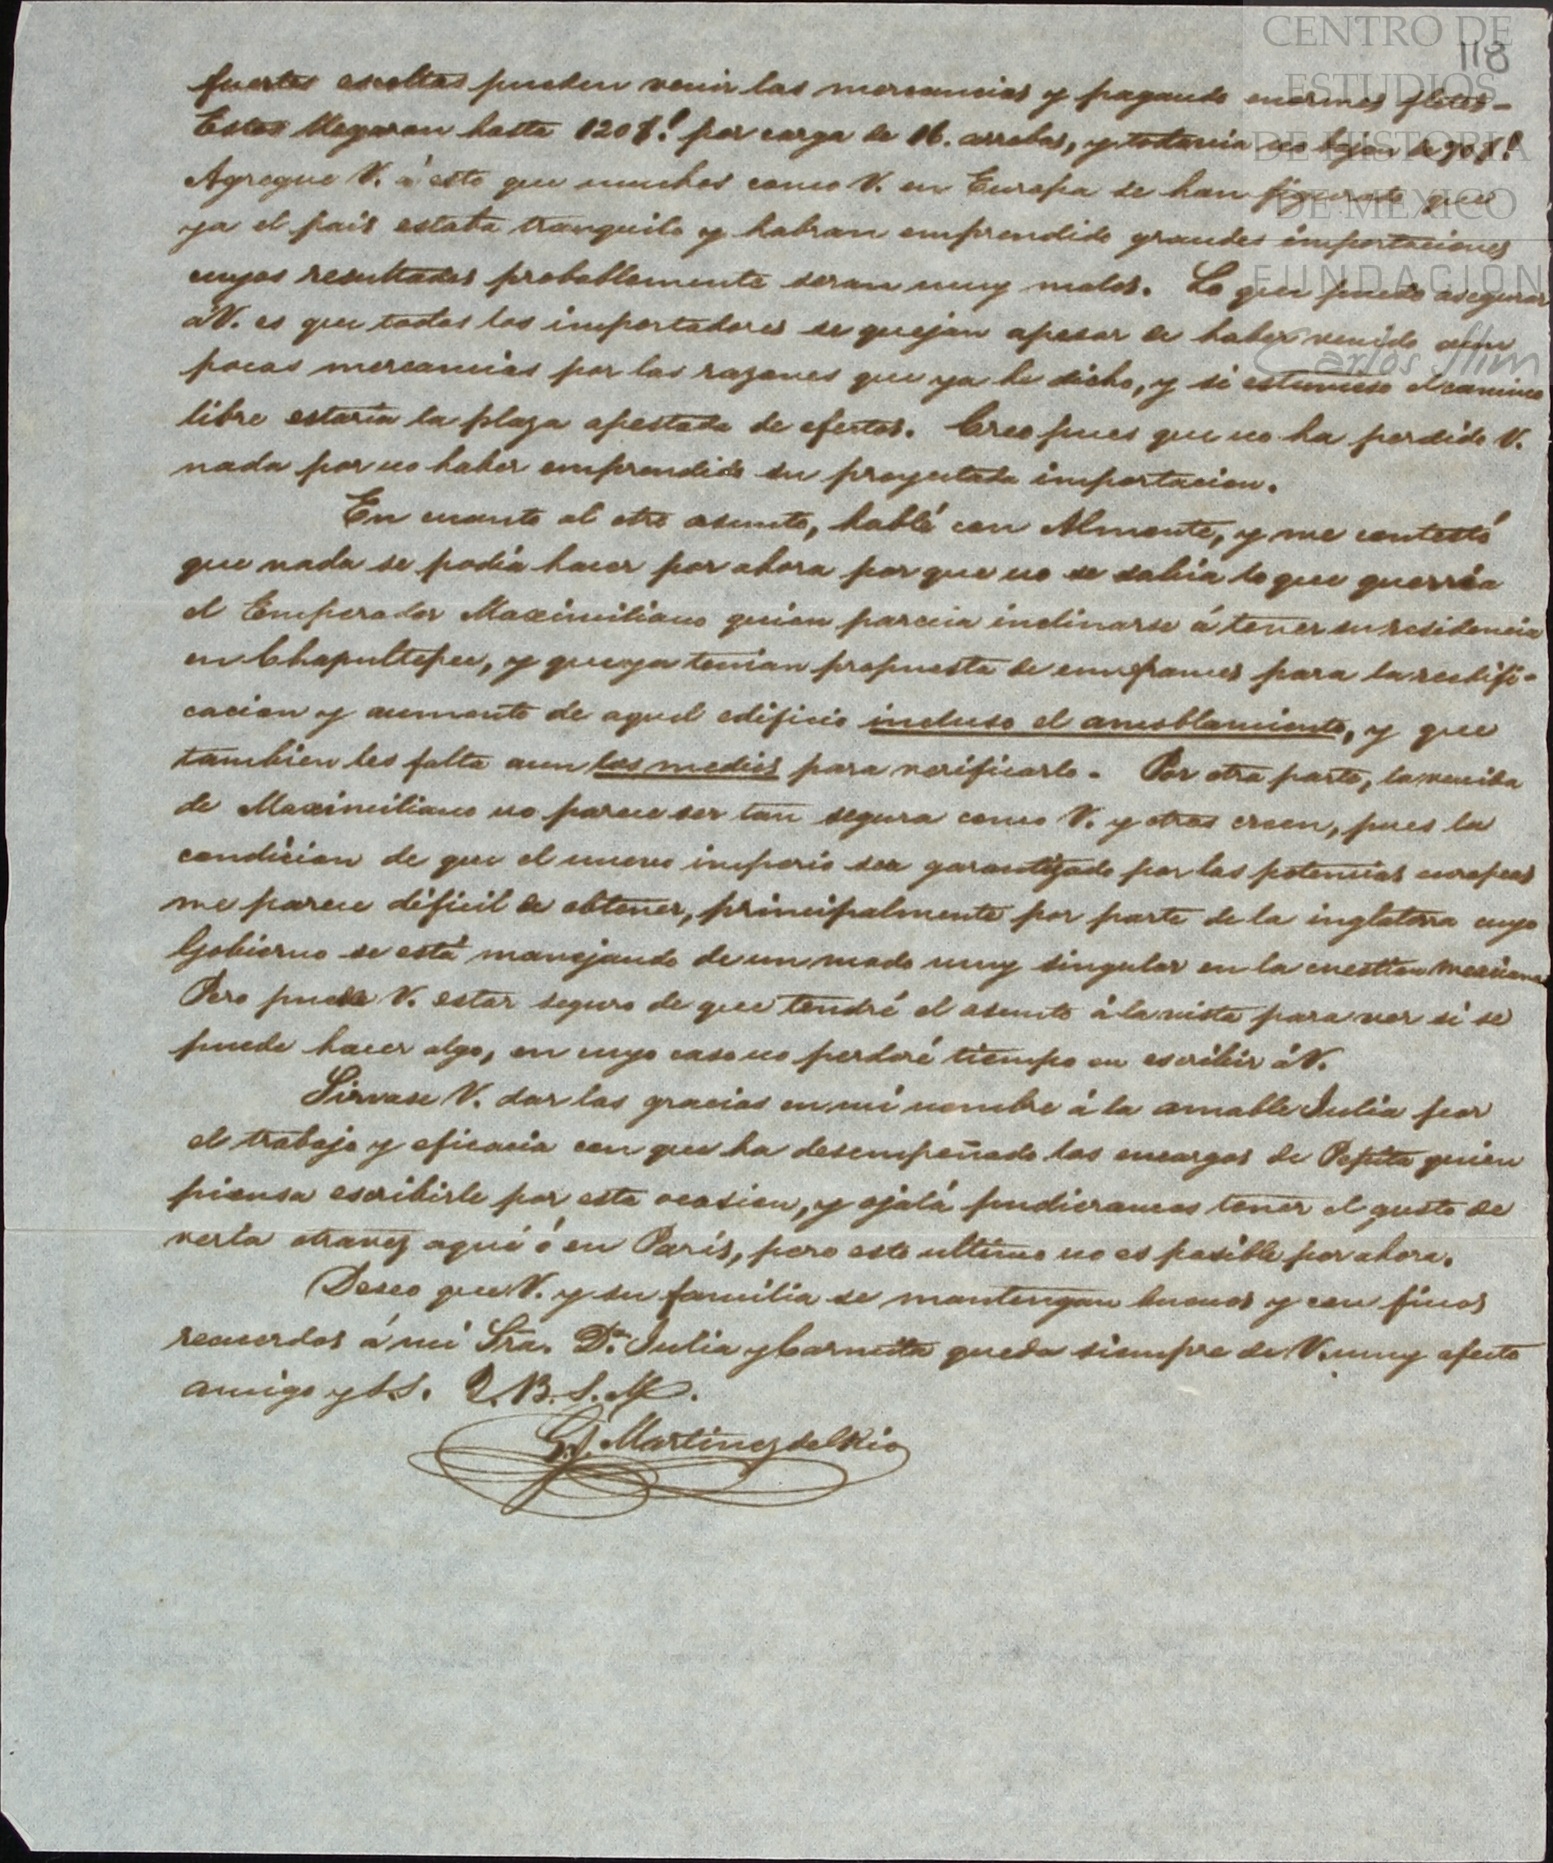 CENTRO DE
ESTUDIOS
DE HISTORIA
DE MEXICO
FUNDACIÓN
Carlos Slim
118
fuertes escoltas pueden venir las mercancias y pagando enormes fletes-
Estos llegaron hasta 120$! por carga de 16. arrobas, y todavia no bajan de 90$!
Agregue V. á esto que muchos como V. en Europa se han figurado que
ya el pais estaba tranquilo y habran emprendido grandes importaciones
cuyos resultados probablemente seran muy malos. Lo que puedo asegurar
a V. es que todos los importadores se quejan apesar de haber venido aun
pocas mercancias por las razones que ya he dicho, y si estuviese el camino
libre estaria la plaza apestada de efectos. Creo pues que no ha perdido V.
nada por no haber emprendido su proyectada importacion.
En cuanto al otro asunto, hablé con Almonte, y me contestó
que nada se podia hacer por ahora por que no se sabia lo que querria
el Emperador Maximiliano quien parecia inclinarse á tener su residencia
en Chapultepec, y que ya tenian propuesta de un frances para la reedifi-
cacion y aumento de aquel edificio incluso el amoblamiento, y que
tambien les falta aun los medios para verificarlo. Por otra parte, la venida
de Maximiliano no parece ser tan segura como V. y otros creen, pues la
condicion de que el nuevo imperio sea garantizado por las potencias europeas
me parece dificil de obtener, principalmente por parte de la inglaterra cuyo
Gobierno se está manejando de un modo muy singular en la cuestion mexicana
Pero puede V. estar seguro de que tendré el asunto á la vista para ver si se
puede hacer algo, en cuyo caso no perderé tiempo en escribir á V.
Sirvase V. dar las gracias en mi nombre á la amable Julia por
el trabajo y eficacia con que ha desempeñado los encargos de Pepita quien
piensa escribirle por esta ocasion, y ojalá pudieramos tener el gusto de
verla otravez aqui ó en Paris, pero esto ultimo no es posible por ahora.
Deseo que V. y su familia se mantengan buenos y con finos
recuerdos á mi Sra. Da. Julia y Carmita queda siempre de V. muy afecto
amigo y S.S. Q.B.S.M.
G. Martinez del Rio